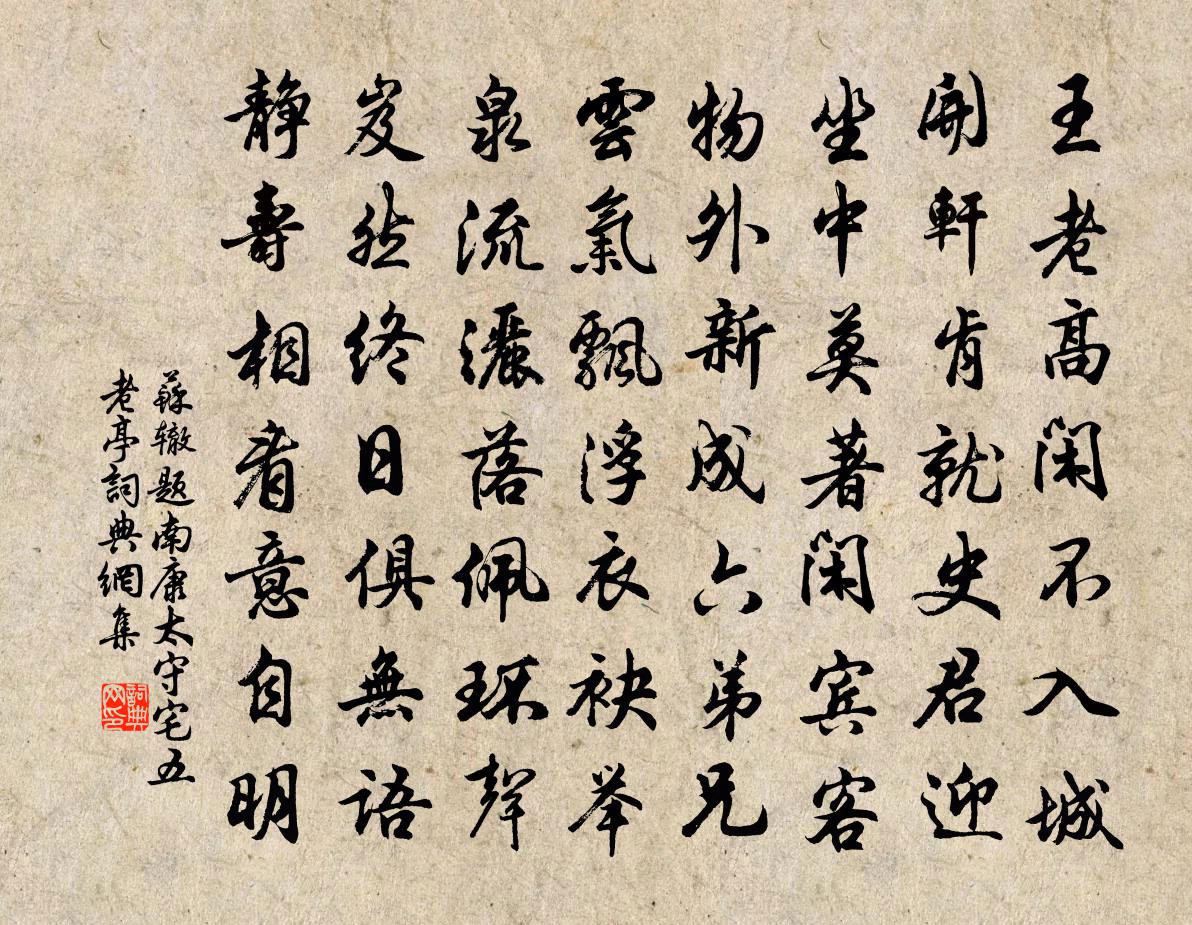 王老高閑不入城
開軒肯就史君迎
坐中莫著閑賓客
物外新成六弟兄
雲氣飄浮衣袂举
泉流灑落佩環聲
岌然終日俱無語
静壽相看意自明
蘇辙题南康太守宅五
老亭詞典網集
詞典
网印